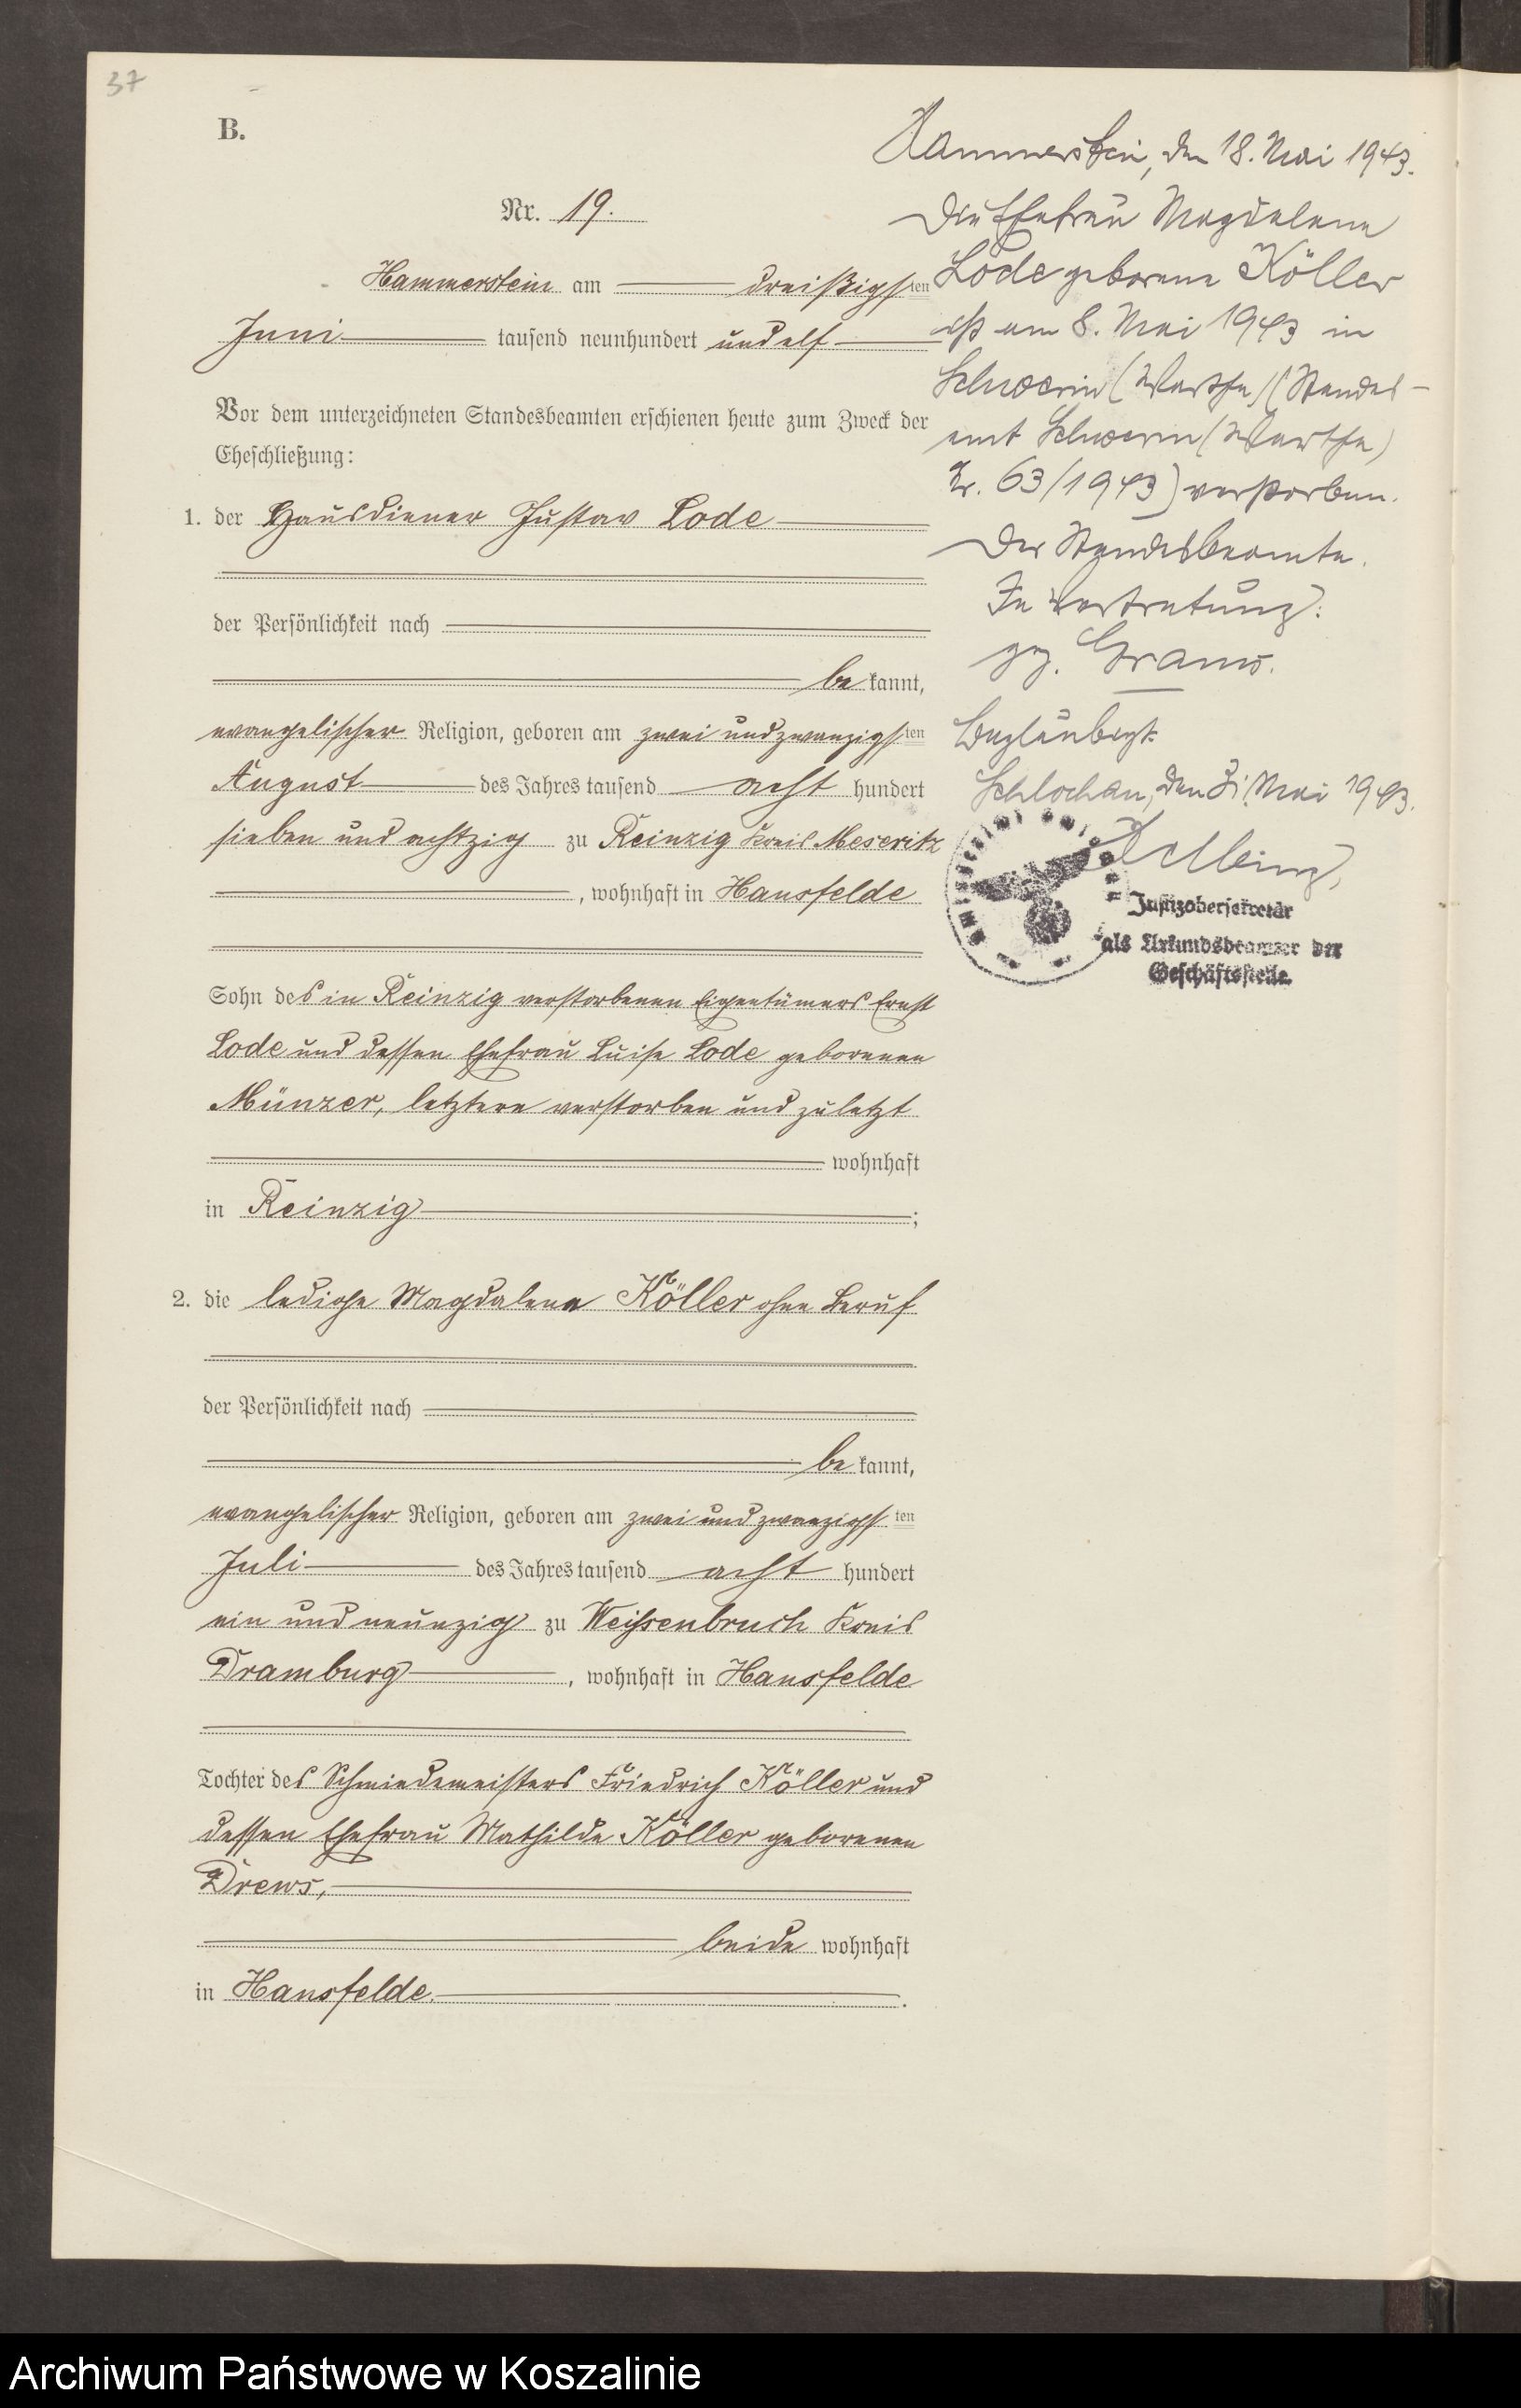 37
B.
Nr. 19.
Hammerstein am dreißigsten
Juni tausend neunhundert und elf
Vor dem unterzeichneten Standesbeamten erschienen heute zum Zweck der
Eheschließung:
1. der Hausdiener Gustav Lode
der Persönlichkeit nach
be kannt,
evangelischer Religion, geboren am zwei und zwanzigsten
August des Jahres tausend acht hundert
sieben und achtzig zu Reinzig Kreis Meseritz
, wohnhaft in Hansfelde
Sohn des in Reinzig verstorbenen Eigentümers Ernst
Lode und dessen Ehefrau Luise Lode geborenen
Münzer, letztere verstorben und zuletzt
wohnhaft
in Reinzig ;
2. die ledige Magdalena Köller ohne Beruf
der Persönlichkeit nach
be kannt,
evangelischer Religion, geboren am zwei und zwanzigsten
Juli des Jahres tausend acht hundert
ein und neunzig zu Weissenbruch Kreis
Dramburg , wohnhaft in Hansfelde
Tochter des Schmiedemeisters Friedrich Köller und
dessen Ehefrau Mathilde Köller geborenen
Drews,
beide wohnhaft
in Hansfelde.
Hammerstein, den 18. Mai 1943.
Die Ehefrau Magdalena
Lode geborene Köller
ist am 8. Mai 1943 in
Schwerin (Warthe) (Standes-
amt Schwerin (Warthe)
Nr. 63/1943) verstorben.
Der Standesbeamte.
In Vertretung:
gez.
Beglaubigt
Schlochau, den 31. Mai 1943.
Justizobersekretär
als Urkundsbeamter der
Geschäftsstelle.
Archiwum Państwowe w Koszalinie